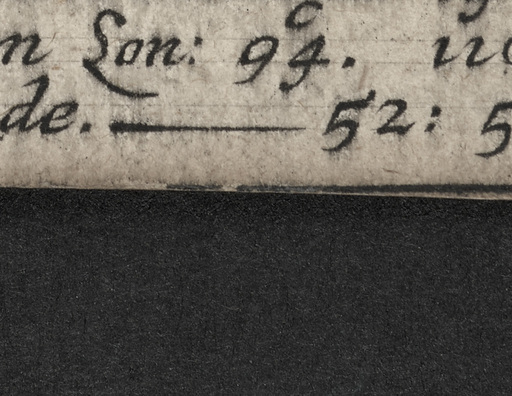 n Lon: 94.
de. — 52: 5